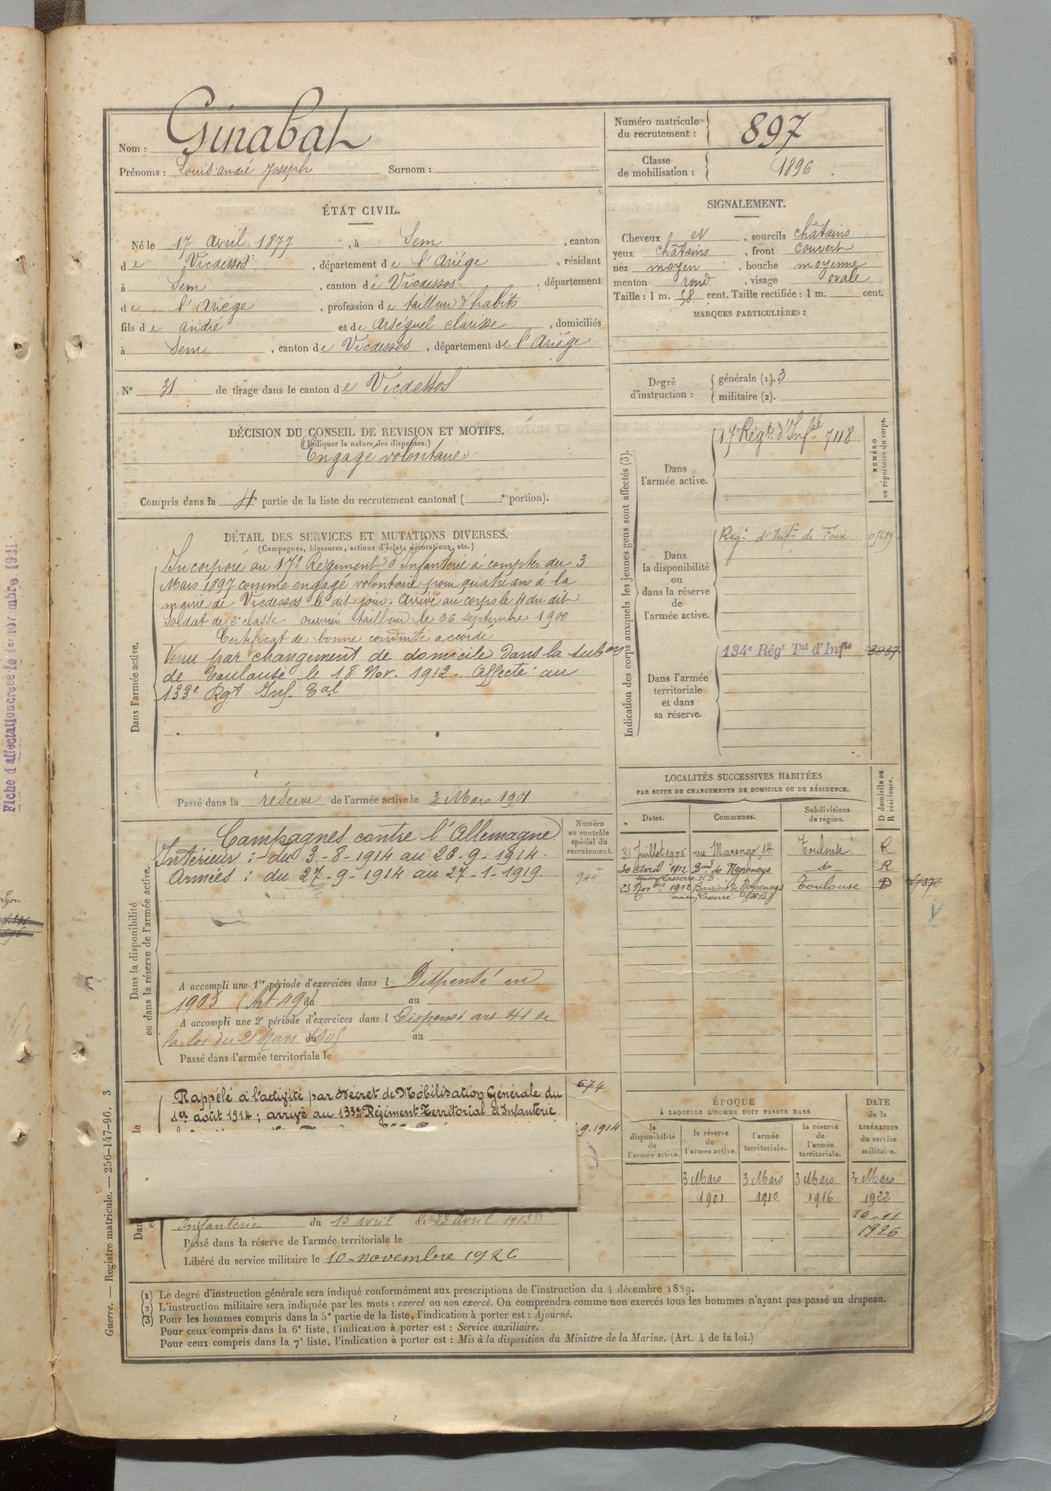 Nom : Ginabat
Prénoms : Louis andré Joseph Surnom :
Numéro matricule du recrutement : 897
Classe de mobilisation : 1896
ÉTAT CIVIL.
Né le 17 Avril 1877, à Sem, canton
de Vicdessos, département de l'Ariége, résidant
à Sem, canton de Vicdessos, département
de l'Ariége, profession de tailleur d'habits
fils de andré et de Arséquel clarisse, domiciliés
à Sem, canton de Vicdessos, département de l'Ariége
N° 31 de tirage dans le canton de Vicdessos
SIGNALEMENT.
Cheveux et, sourcils châtains
yeux châtains, front couvert
nez moyen, bouche moyenne
menton rond, visage ovale
Taille : 1 m. 58 cent. Taille rectifiée : 1 m. cent.
MARQUES PARTICULIÈRES :
Degré d'instruction : générale (1). 3
militaire (2).
DÉCISION DU CONSEIL DE REVISION ET MOTIFS.
(Indiquer la nature des dispenses.)
Engagé volontaire
Compris dans la 4e partie de la liste du recrutement cantonal ( e portion).
DÉTAIL DES SERVICES ET MUTATIONS DIVERSES.
(Campagnes, blessures, actions d'éclat, décorations, etc.)
Dans l'armée active.
Incorporé au 17e Régiment d'Infanterie à compter du 3
Mars 1897 comme engagé volontaire pour quatre ans à la
mairie de Vicdessos le dit jour. Arrivé au corps le 4 du dit
Soldat de 2e classe ouvrier tailleur le 26 septembre 1900
Certificat de bonne conduite accordé
Venu par changement de domicile dans la subon
de Toulouse le 18 Nov. 1912. Affecté au
133e Rgt Inf. Tal
Passé dans la réserve de l'armée active le 3 Mars 1901
Indication des corps auxquels les jeunes gens sont affectés (3).
NUMÉRO au répertoire du corps.
Dans l'armée active.
17 Régt d'Infie 7118
Dans la disponibilité ou dans la réserve de l'armée active.
Régt d'Infie de Foix
Dans l'armée territoriale et dans sa réserve.
134e Régt Tal d'Infie
LOCALITÉS SUCCESSIVES HABITÉES
PAR SUITE DE CHANGEMENTS DE DOMICILE OU DE RÉSIDENCE.
D domicile ou R résidence.
Dates. Communes. Subdivisions de région.
31 Juillet 1906 rue Marengo, 14 Toulouse R
20 Avril 1912 de do R
1912 Toulouse D
Dans la disponibilité ou dans la réserve de l'armée active.
Numéro au contrôle spécial du recrutement.
Campagnes contre l'Allemagne
Intérieur : du 3-8-1914 au 26-9-1914.
Armées : du 27-9-1914 au 27-1-1919.
A accompli une 1re période d'exercices dans l Dispensé en
1903 (Art 49 du au
A accompli une 2e période d'exercices dans l Dispensé art 41 de
la loi du 21 Mars 1905 au
Passé dans l'armée territoriale le
Rappelé à l'activité par Décret de Mobilisation Générale du
1er août 1914 ; arrivé au 133e Régiment Territorial d'Infanterie
674
9.1914
Infanterie du 15 avril au 23 avril 1913
Passé dans la réserve de l'armée territoriale le
Libéré du service militaire le 10 novembre 1926
ÉPOQUE
À LAQUELLE L'HOMME DOIT PASSER DANS
DATE de la LIBÉRATION du service militaire.
la disponibilité de l'armée active. la réserve de l'armée active. l'armée territoriale. la réserve de l'armée territoriale.
3 Mars 3 Mars 3 Mars 3 Mars
1901 1910 1916 1922
10-11
1926
(1) Le degré d'instruction générale sera indiqué conformément aux prescriptions de l'instruction du 4 décembre 1889.
(2) L'instruction militaire sera indiquée par les mots : exercé ou non exercé. On comprendra comme non exercés tous les hommes n'ayant pas passé au drapeau.
(3) Pour les hommes compris dans la 5e partie de la liste, l'indication à porter est : Ajourné.
Pour ceux compris dans la 6e liste, l'indication à porter est : Service auxiliaire.
Pour ceux compris dans la 7e liste, l'indication à porter est : Mis à la disposition du Ministre de la Marine. (Art. 4 de la loi.)
Guerre. — Registre matricule. — 256-147-96. 3